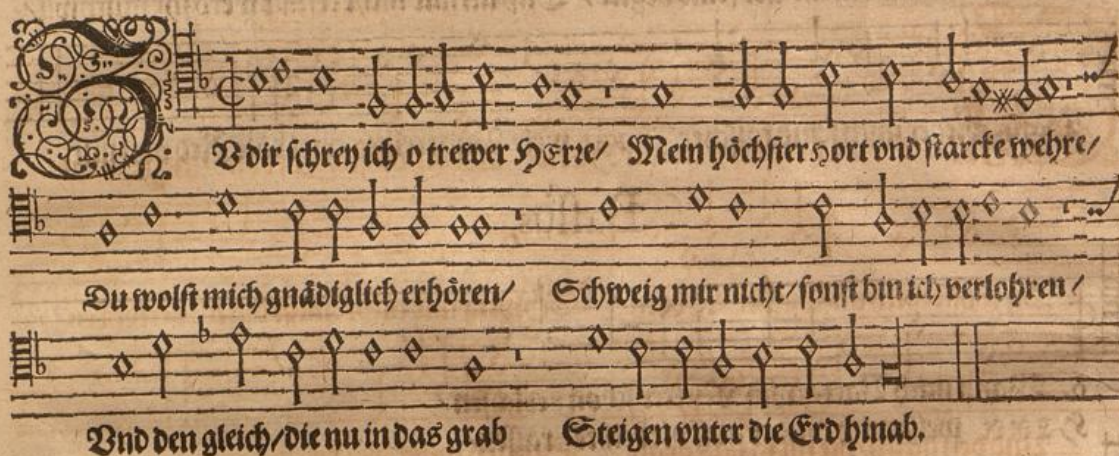 ZV dir schrey ich o trewer HErre/ Mein höchster Hort vnd starcke wehre/
Du wolst mich gnädiglich erhören/ Schweig mir nicht/sonst bin ich verlohren/
Vnd den gleich/die nu in das grab Steigen vnter die Erd hinab.